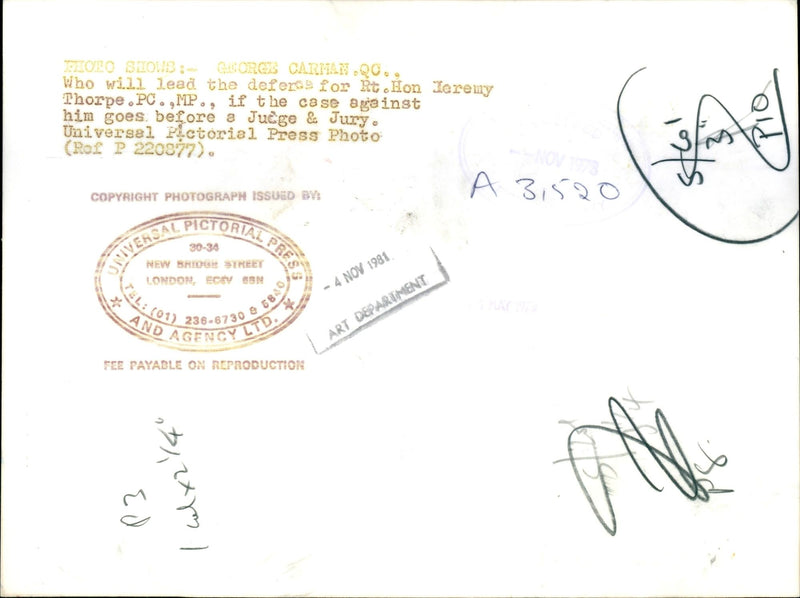 PHOTO SHOWS:- GEORGE CARMAN.QC..
Who will lead the defence for Rt.Hon Jeremy
Thorpe.PC.,MP., if the case against
him goes before a Judge & Jury.
Universal Pictorial Press Photo
(Ref P 220877).
COPYRIGHT PHOTOGRAPH ISSUED BY:
UNIVERSAL PICTORIAL PRESS
30-34
NEW BRIDGE STREET
LONDON, EC4V 6BN
TEL: (01) 236-6730 & 5840
AND AGENCY LTD.
FEE PAYABLE ON REPRODUCTION
- 4 NOV 1981
ART DEPARTMENT
NOV 1978
A 3,520
P10
MAY 1979
P3